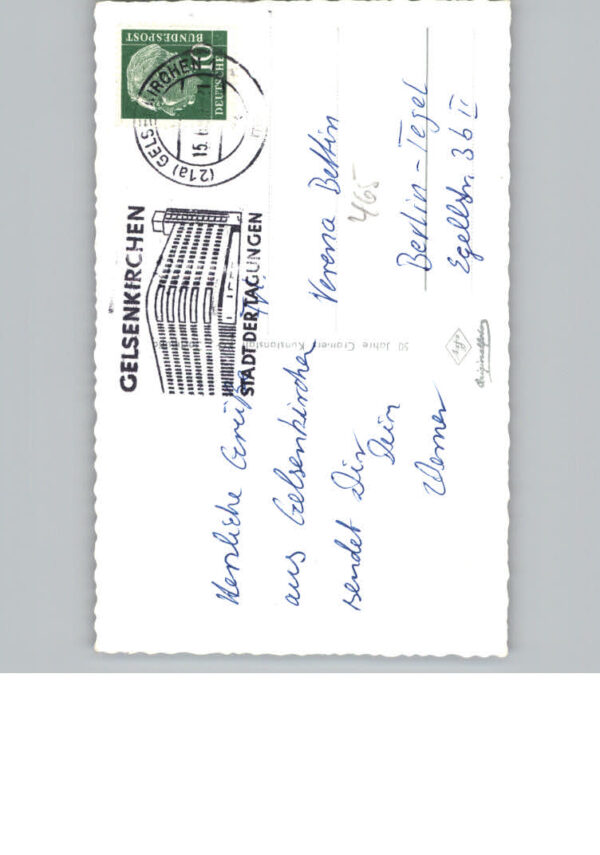 DEUTSCHE
BUNDESPOST
10
(21a) GELSENKIRCHEN 1
15.
GELSENKIRCHEN
STADT DER TAGUNGEN
Herzliche Grüße
aus Gelsenkirchen
sendet Dir
Dein
Werner
50 Jahre Cramers Kunstanstalt
Verena Bettin
465
Berlin-Tegel
Egellstr. 36 II